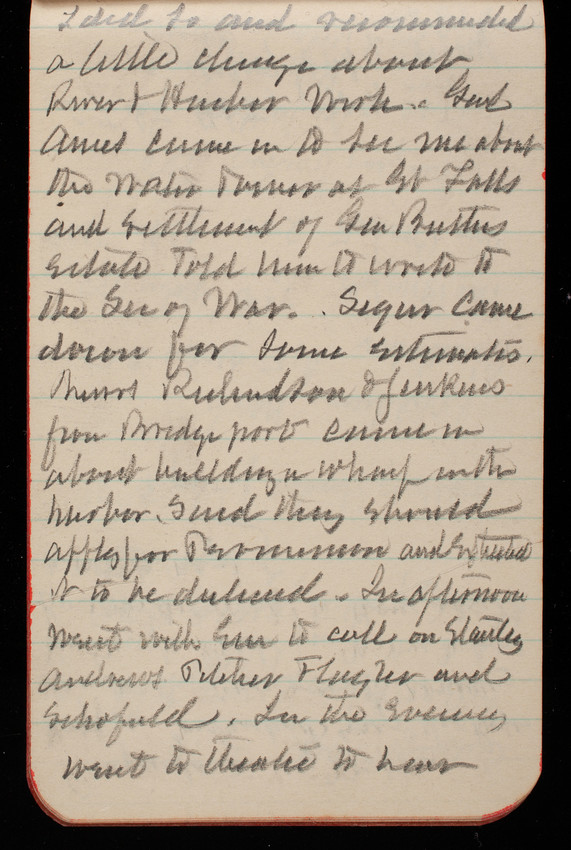 I did so and recommended
a little change about
River & Harbor Work. Genl
Ames came in to see me about
the Water Power at Gt Falls
and settlement of Gen Butlers
Estate told him to write to
the Sec of War. Segur came
down for some estimates.
Messrs Richardson & Jenkins
from Bridgeport came in
about building a wharf in the
harbor. Said they should
apply for Permission and
it to be declined. In afternoon
went with Em to call on Stanley
Andrews and
Schofield. In the evening
went to theatre to hear